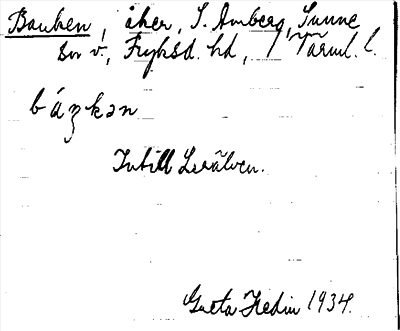 Banken, åker, S. Amberg, Sunne
sn v., Fryksd. hd, Värml. l.
Intill Lerälven.
Greta Hedin 1934.